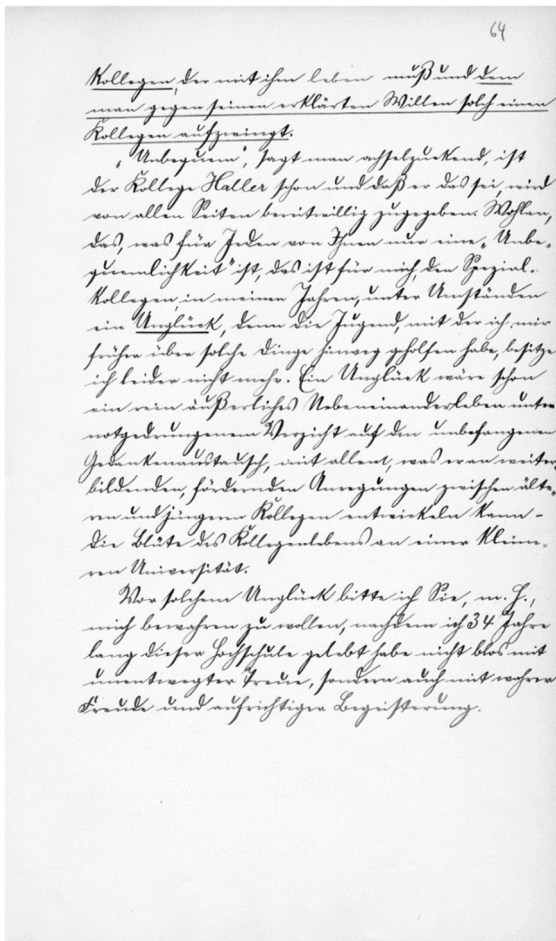 64
Kollegen, der mit ihm leben muß und dem
man gegen seinen erklärten Willen solch einen
Kollegen aufzwingt.
„Unbequem“, sagt man achselzuckend, ist
der Kollege Haller schon und daß er das sei, wird
von allen Seiten bereitwillig zugegeben. Wohlan,
das, was für Jeden von Ihnen nur eine „Unbe-
quemlichkeit“ ist, das ist für mich, den Spezial-
kollegen, in meinen Jahren, unter Umständen
ein Unglück, denn die Jugend, mit der ich mir
früher über solche Dinge hinweg geholfen habe, besitze
ich leider nicht mehr. Ein Unglück wäre schon
ein rein äußerliches Nebeneinanderleben unter
notgedrungenem Verzicht auf den unbefangenen
Gedankenaustausch, mit allem, was er an weiter-
bildenden, fördernden Anregungen zwischen älte-
ren und jüngeren Kollegen entwickeln kann -
die Blüte des Kollegenlebens an einer kleine-
ren Universität.
Vor solchem Unglück bitte ich Sie, m. H.,
mich bewahren zu wollen, nachdem ich 34 Jahre
lang dieser Hochschule gelebt habe nicht blos mit
unentwegter Treue, sondern auch mit wahrer
Freude und aufrichtiger Begeisterung.